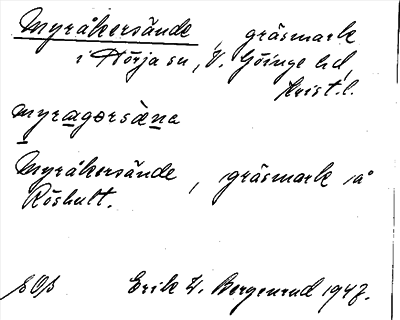 Myråkersände, gräsmark
i Hörja sn, V. Göinge hd
Krist. l.
myragərsä̀na
Myråkersände, gräsmark på
Röshult.
Erik W. Bergenrud 1947.